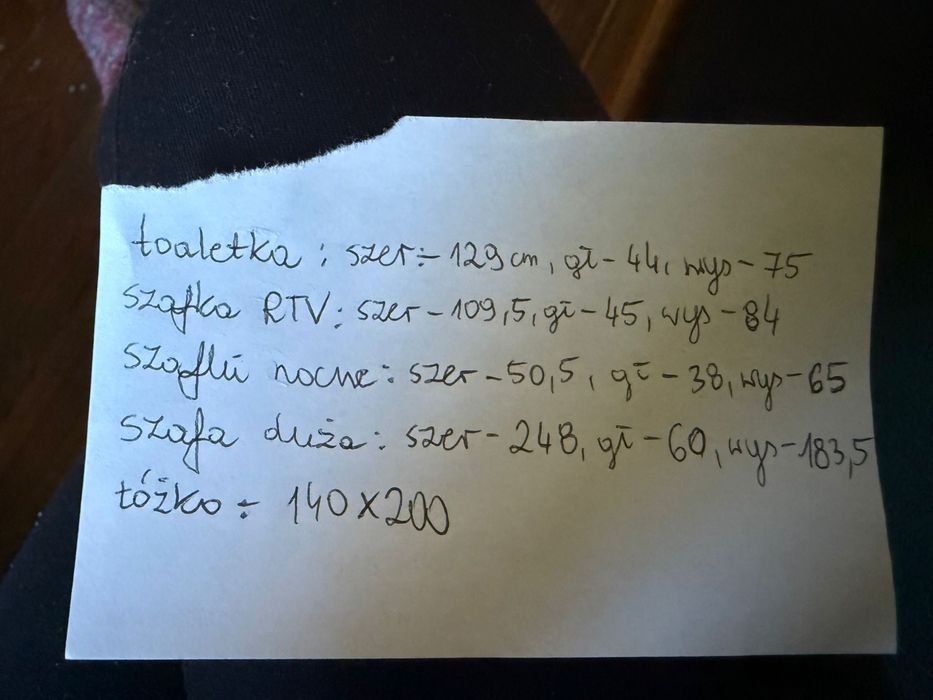 toaletka: szer÷129cm, gł-44, wys-75
szafka RTV: szer-109,5, gł-45, wys-84
szafki nocne: szer-50,5, gł-38, wys-65
szafa duża: szer-248, gł-60, wys-183,5
łóżko÷140x200